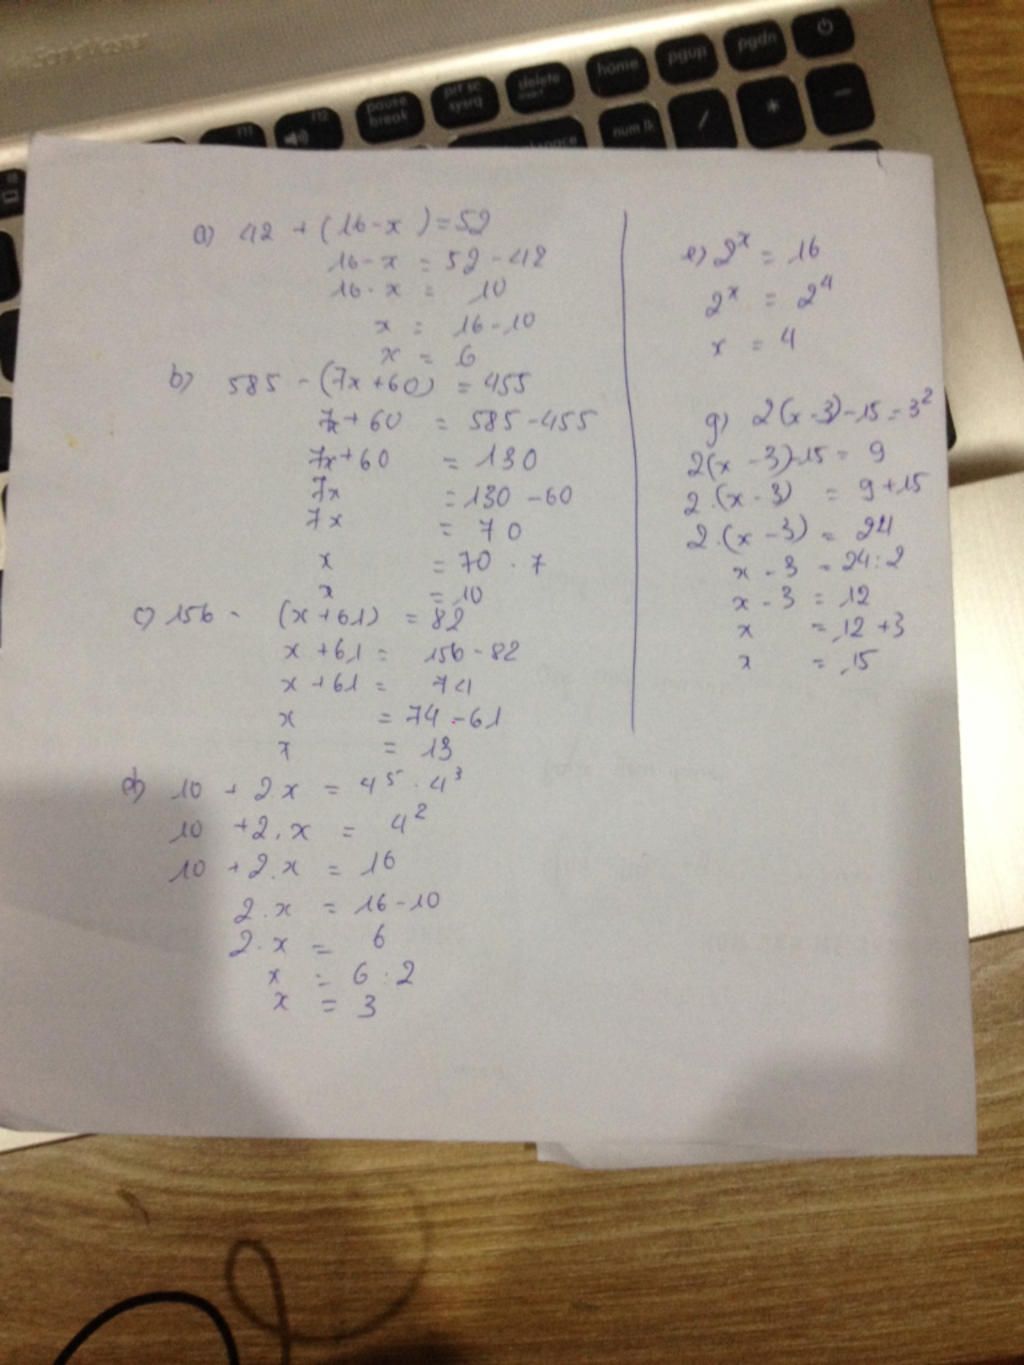 pause break
prt sc sysrq
delete
home
pgup
pgdn
F11
F12
num lk
/
*
-
a) 42 + (16-x) = 52
16-x = 52-42
16-x = 10
x = 16-10
x = 6
b) 585 - (7x+60) = 455
7x+60 = 585-455
7x+60 = 130
7x = 130-60
7x = 70
x = 70 : 7
x = 10
c) 156 - (x+61) = 82
x+61 = 156-82
x+61 = 74
x = 74-61
x = 13
d) 10 + 2.x = 4⁵ : 4³
10 + 2.x = 4²
10 + 2.x = 16
2.x = 16-10
2.x = 6
x = 6 : 2
x = 3
e) 2ˣ = 16
2ˣ = 2⁴
x = 4
g) 2(x-3)-15 = 3²
2(x-3)-15 = 9
2.(x-3) = 9+15
2.(x-3) = 24
x-3 = 24:2
x-3 = 12
x = 12+3
x = 15